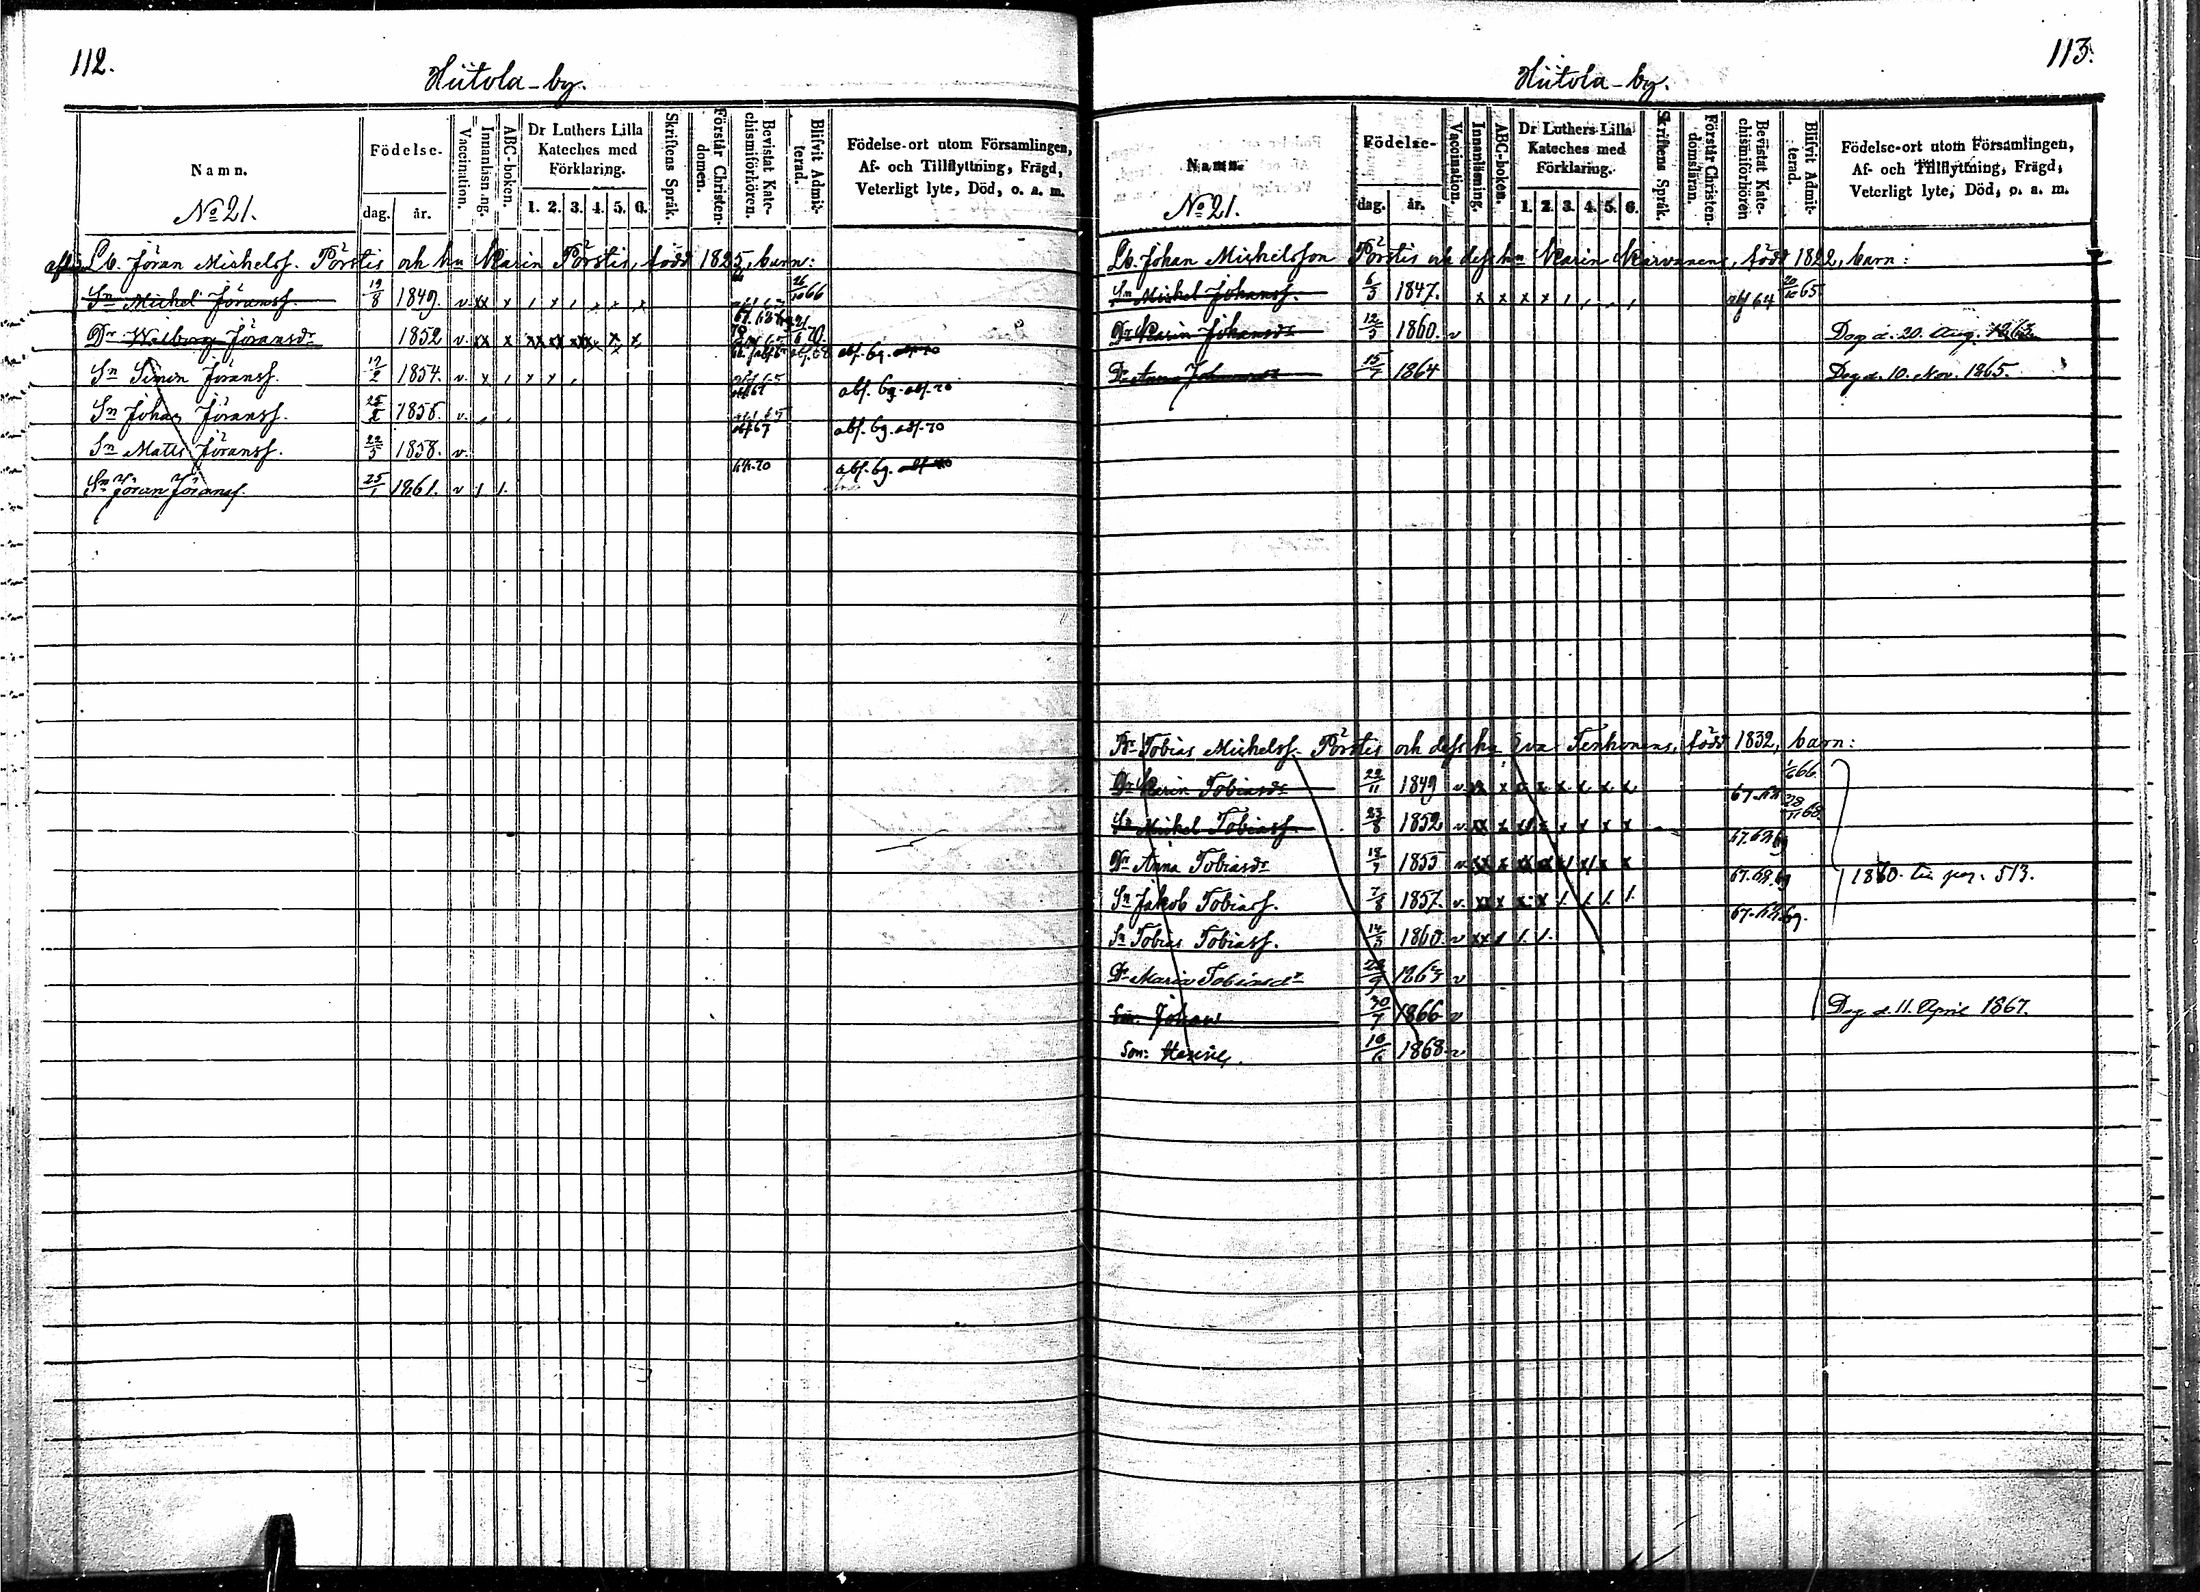 112.
Hiitola - by.
Namn.
№ 21.
Födelse-
dag. år.
Vaccination.
Innanläsning.
ABC-boken.
Dr Luthers Lilla
Kateches med
Förklaring.
1. 2. 3. 4. 5. 6.
Skriftens Språk.
Förstår Christen-
domen.
Bevistat Kate-
chismiförhören.
Blifvit Admit-
terad.
Födelse-ort utom Församlingen,
Af- och Tillflyttning, Frägd,
Veterligt lyte, Död, o. a. m.
Lb. Jöran Michelss. Pörstis och hu Karin Pörstis, född 1825, barn:
Sn Michel Jöranss. 19/8 1849. v. xx x 26/10 66
Dr Walborg Jöransdr 1852 v. xx x
Sn Simon Jöranss. 1854. v. x abs. 69. abs. 70
Sn Johan Jöranss. 1856. v. abs. 69. abs. 70
Sn Matts Jöranss. 22/5 1858. v. abs. 69. abs. 70
Sn Jöran Jöranss. 25/1 1861. v 1 1. abs. 69. abs. 70
113.
Hiitola - by.
Namn.
№ 21.
Födelse-
dag. år.
Vaccination.
Innanläsning.
ABC-boken.
Dr Luthers Lilla
Kateches med
Förklaring.
1. 2. 3. 4. 5. 6.
Skriftens Språk.
Förstår Christen-
domsläran.
Bevistat Kate-
chismiförhören
Blifvit Admit-
terad.
Födelse-ort utom Församlingen,
Af- och Tillflyttning, Frägd,
Veterligt lyte, Död, o. a. m.
Lb. Johan Michelsson Pörstis och dess hu Karin Karvanens, född 1822, barn:
Sn Michel Johanss. 6/3 1847. x x x x abs 64 20/10 65
Dr Karin Johansdr 12/3 1860. v Dog d. 20. Aug. 1863.
Dr Anna Johansdr 15/7 1864 Dog d. 10. Nov. 1865.
Br Tobias Michelss. Pörstis och dess hu Eva Tenhonens, född 1832, barn:
Dr Karin Tobiasdr 22/11 1849 v. xx x x x x x x x 66.
Sn Michel Tobiass. 23/8 1852 v. xx x x x x x x 67. 68 28/11 68
Dr Anna Tobiasdr 18/7 1855 v xx x xx x x 67. 68. 69
Sn Jakob Tobiass. 7/8 1857. v. xx x x x 1. 1. 1. 1. 67. 68. 69 1870. till pag. 513.
Sn Tobias Tobiass. 14/3 1860. v xx 1 1. 1. 67. 68. 69.
Dr Maria Tobiasdr 1863 v
Son. Johan 30/7 1866 v Dog d. 11. April 1867.
Son: Henrik. 10/6 1868 v